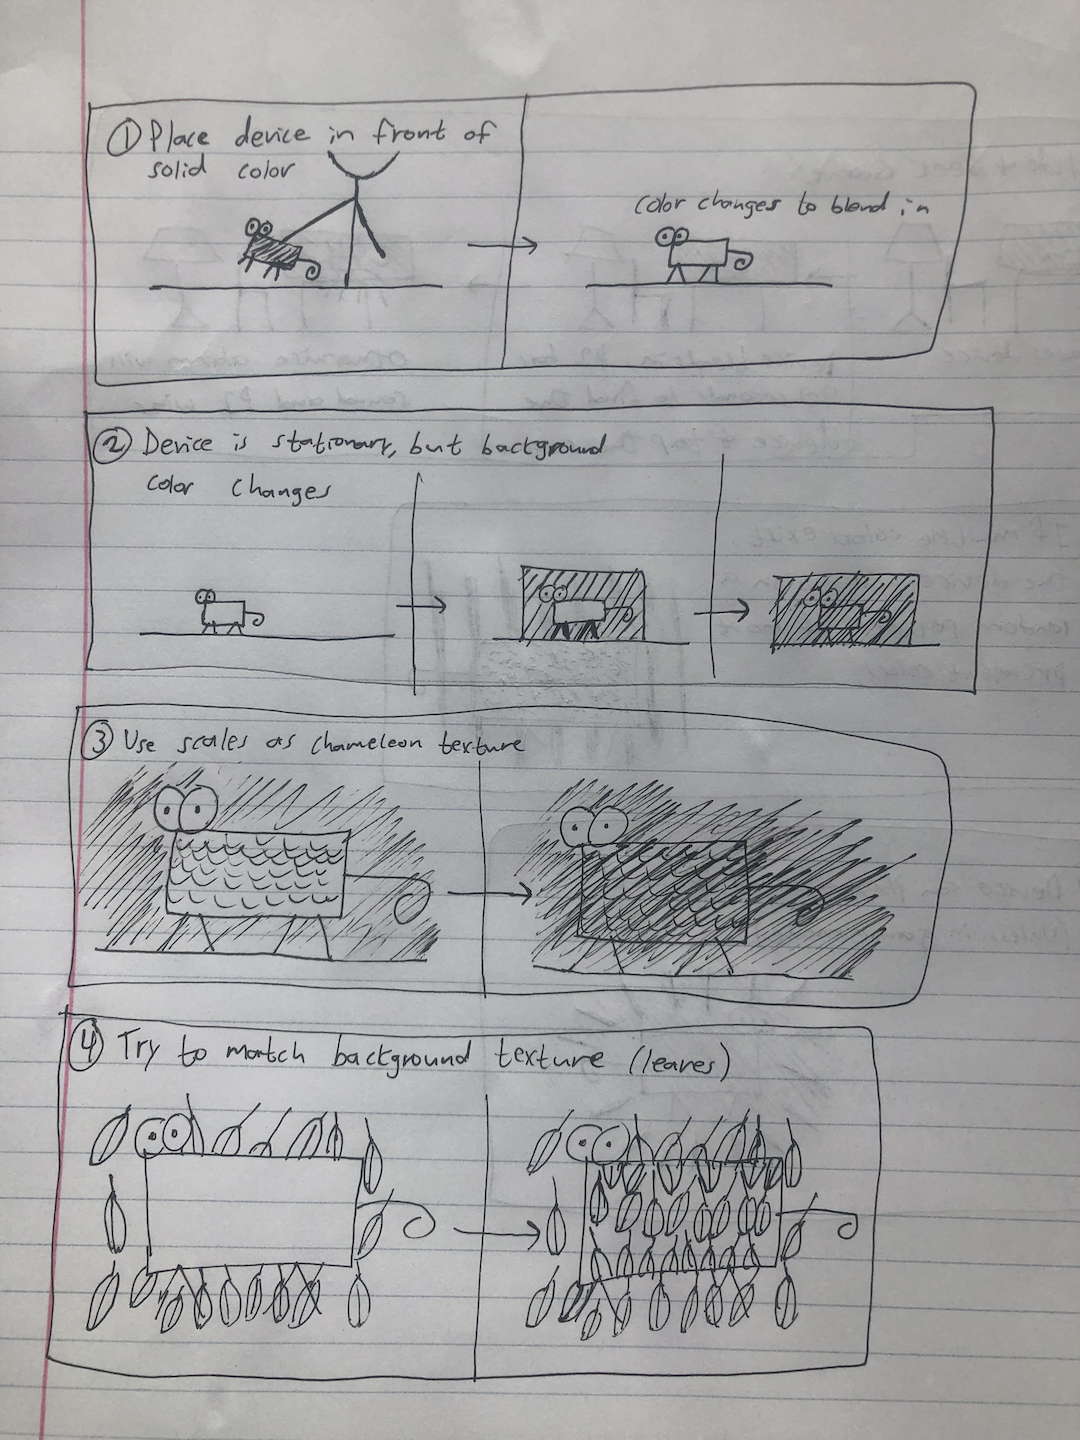 ① Place device in front of
solid color
color changes to blend in
② Device is stationary, but background
color changes
③ Use scales as chameleon texture
④ Try to match background texture (leaves)